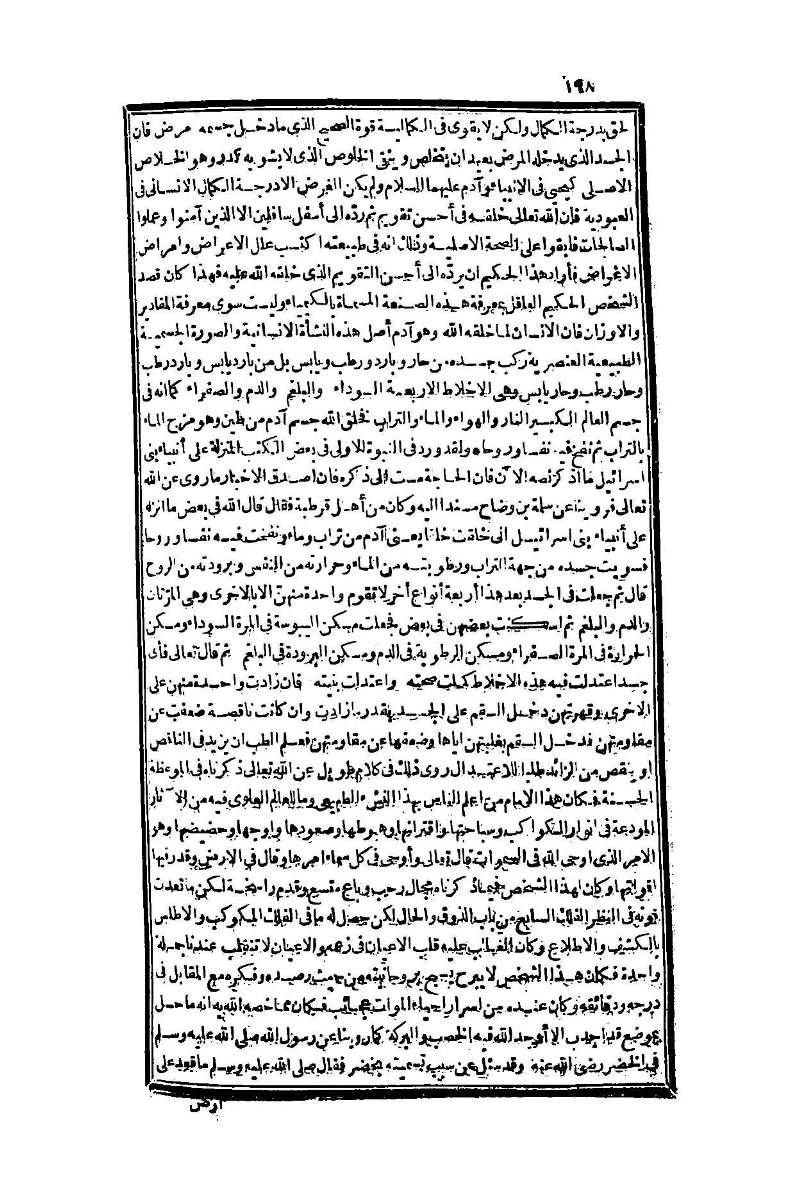 ١٩٨
لحق بدرجة الكمال ولكن لا يقوى فى الكمالية قوة الصحيح الذى ما دخل جسمه مرض فان
الجسد الذى يدخله المرض بعيد ان يتخلص وينقى الخلوص الذى لا يشوبه كدر وهو الخلاص
الاصلى كيحيى فى الانبياء وآدم عليهما السلام ولم يكن الغرض الا درجة الكمال الانسانى فى
العبودية فان الله تعالى خلقه فى أحسن تقويم ثم رده الى أسفل سافلين الا الذين آمنوا وعملوا
الصالحات فابقوا على الصحة الاصلية وذلك انه فى طبيعته اكتسب علل الاعراض وامراض
الاغراض فأراد هذا الحكيم ان يرده الى أحسن التقويم الذى خلقه الله عليه فهذا كان قصد
الشخص الحكيم العاقل بمعرفة هذه الصنعة المسماة بالكيمياء وليست سوى معرفة المقادير
والاوزان فان الانسان لما خلقه الله وهو آدم أصل هذه النشأة الانسانية والصورة الجسمية
الطبيعية العنصرية ركب جسده من حار وبارد ورطب ويابس بل من بارد يابس وبارد رطب
وحار رطب وحار يابس وهى الاخلاط الاربعة السوداء والبلغم والدم والصفراء كما انه فى
جسم العالم الكبير النار والهواء والماء والتراب فخلق الله جسم آدم من طين وهو مزج الماء
بالتراب ثم نفخ فيه نفسا وروحا ولقد ورد فى النبوة الاولى فى بعض الكتب المنزلة على أنبياء بنى
اسرائيل ما أذكر نصه الآن فان الحاجة مست الى ذكره فان اصدق الاخبار ما روى عن الله
تعالى فروينا عن سلمة بن وضاح مسندا اليه وكان من أهل قرطبة فقال قال الله فى بعض ما انزله
على أنبياء بنى اسرائيل انى خلقت خلقا يعنى آدم من تراب وماء ونفخت فيه نفسا وروحا
فسويت جسده من جهة التراب ورطوبته من الماء وحرارته من النفس وبرودته من الروح
قال ثم جعلت فى الجسد بعد هذا أربعة أنواع أخر لا تقوم واحدة منهن الا بالاخرى وهى المرتان
والدم والبلغم ثم اسكنت بعضهن فى بعض فجعلت مسكن اليبوسة فى المرة السوداء ومسكن
الحرارة فى المرة الصفراء ومسكن الرطوبة فى الدم ومسكن البرودة فى البلغم ثم قال تعالى فأى
جسد اعتدلت فيه هذه الاخلاط كملت صحته واعتدلت بنيته فان زادت واحدة منهن على
الاخرى وقهرتهن دخل السقم على الجسد بقدر ما زادت وان كانت ناقصة ضعفت عن
مقاومتهن فدخل السقم بغلبتهن اياها وضعفها عن مقاومتهن فعلم الطب ان يزيد فى الناقص
او ينقص من الزائد طلبا للاعتدال روى ذلك فى كلام طويل عن الله تعالى ذكرناه فى الموعظة
الحسنة فكان هذا الامام من اعلم الناس بهذا النشء الطبيعى وما للعالم العلوى فيه من الآثار
المودعة فى انوار الكواكب وسباحتها واقتراناتها وهبوطها وصعودها وأوجها وحضيضها وهو
الامر الذى اوحى الله فى السموات قال تعالى وأوحى فى كل سماء امرها وقال فى الارض وقدر فيها
اقواتها وكان لهذا الشخص فيما ذكرناه مجال رحب وباع متسع وقدم راسخة لكن ما تعدت
قوته فى النظر الفلك السابع من باب الذوق والحال لكن حصل له ما فى الفلك المكوكب والاطلس
بالكشف والاطلاع وكان الغالب عليه قلب الاعيان فى زعمه والاعيان لا تنقلب عندنا جملة
واحدة فكان هذا الشخص لا يبرح يسبح بروحانيته من حيث رصده وفكره مع المقابل فى
درجه ودقائقه وكان عنده من اسرار احياء الموات عجائب فكان مما خصه الله به انه ما حل
بموضع قد اجدب الا أوجد الله فيه الخصب والبركة كما روينا عن رسول الله صلى الله عليه وسلم
فى الخضر رضى الله عنه وقد سئل عن سبب تسميته بخضر فقال صلى الله عليه وسلم ما قعد على
ارض